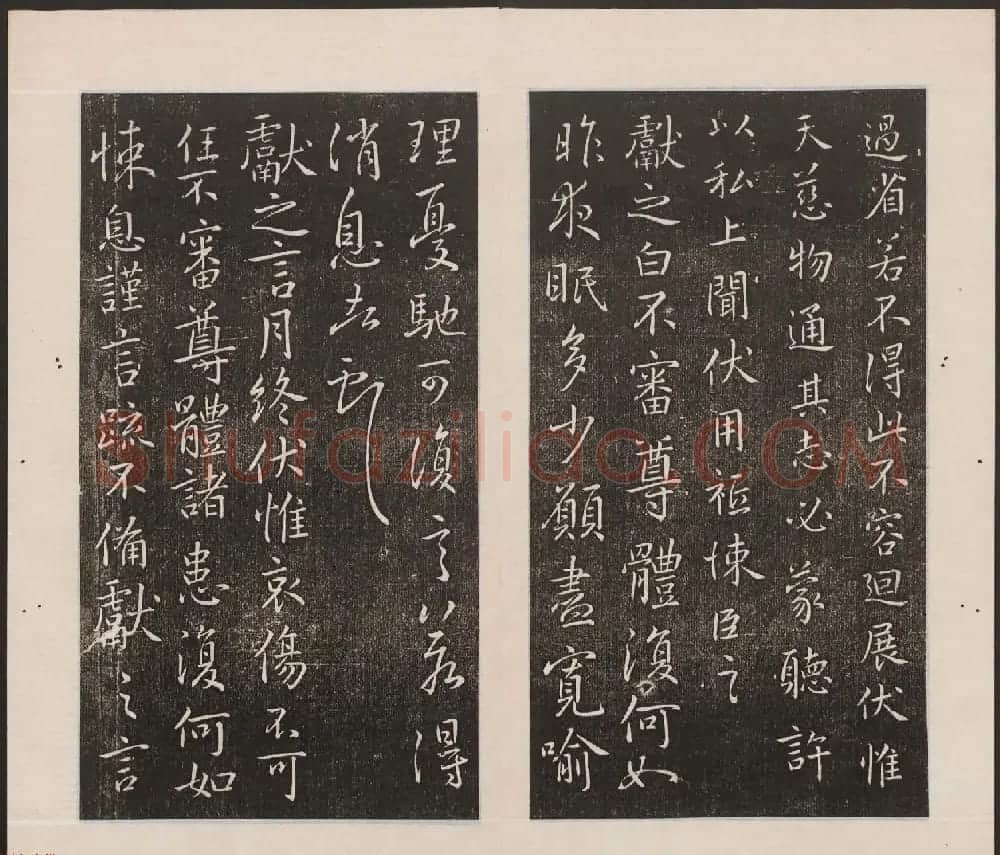 過省若不得此不容迴展伏惟
天慈物通其志必蒙聽許
以私上聞伏用祗悚臣之
獻之白不審尊體復何如
昨夜眠多少願盡寬喻
理憂馳可復言以若得
消息去
獻之言月終伏惟哀傷不可
任不審尊體諸患復何如
悚息謹言疏不備獻之言
Shufazilidao.COM